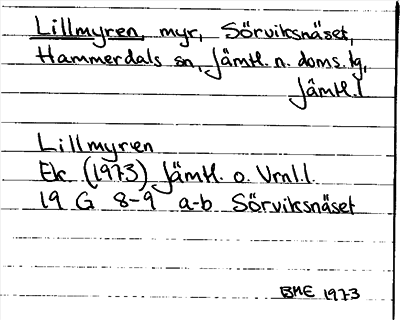 Lillmyren, myr, Sörviksnäset,
Hammerdals sn, Jämtl. n. doms. tg,
Jämtl. l
Lillmyren
Ek. (1973) Jämtl. o. Vrnl. l.
19 G 8-9 a-b Sörviksnäset
BME 1973